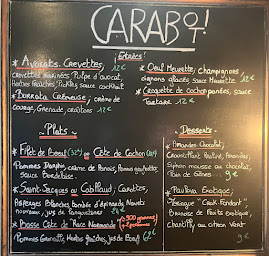 CARABOT!
Entrées
* Avocats, Crevettes, 12€
crevettes marinées, Pulpe d'avocat,
Herbes fraîches, Pickles, sauce cocktail
* Burrata Crémeuse, crème de
courge, Grenade, croûtons 12€
* Oeuf Meurette, champignons
oignons glacés, sauce Meurette 12€
* Croquette de Cochon panées, sauce
Tartare 12€
Plats
* Filet de Boeuf (32€) ou Côte de Cochon
Pommes Dauphin, crème de Panais,
sauce Bordelaise.
* Saint-Jacques ou Cabillaud, Carottes,
Asperges Blanches, tombée d'épinards, Navets
nouveaux, jus de langoustines 26€
* Basse Côte de Race Normande
Pommes Grenaille, Herbes fraîches, jus de Boeuf
Desserts
* Amandes Chocolat,
Croustillant Praliné,
Siphon mousse au chocolat,
Pain de Gênes 9€
* Pavlova Exotique,
Meringue
Brunoise de Fruits exotiques,
Chantilly au citron Vert
9€